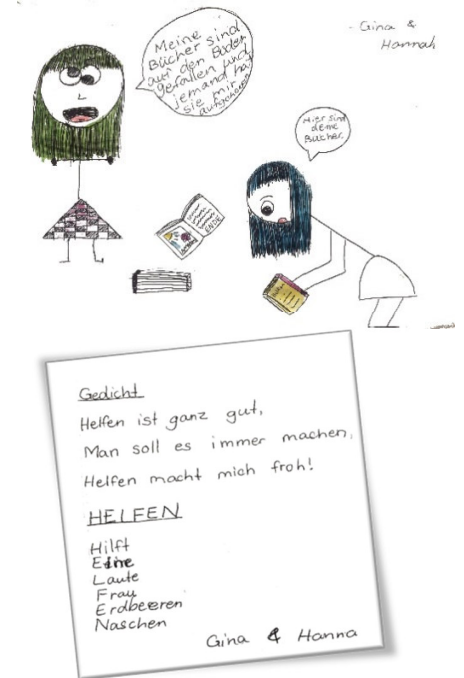 - Gina &
Hannah
Meine
Bücher sind
auf den Boden
gefallen und
jemand hat
sie mir
aufgehoben
Hier sind
deine
Bücher.
ENDE
Gedicht
Helfen ist ganz gut,
Man soll es immer machen,
Helfen macht mich froh!
HELFEN
Hilft
Eine
Laute
Frau
Erdbeeren
Naschen
Gina & Hanna